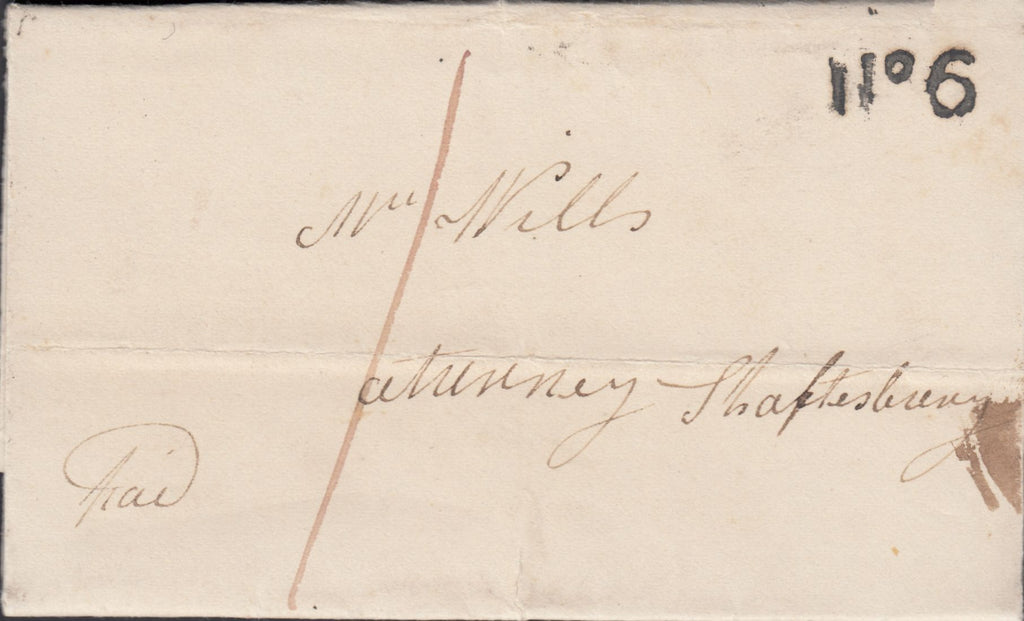 No 6
Mr Wills
aturney Shaftesbury
Paid